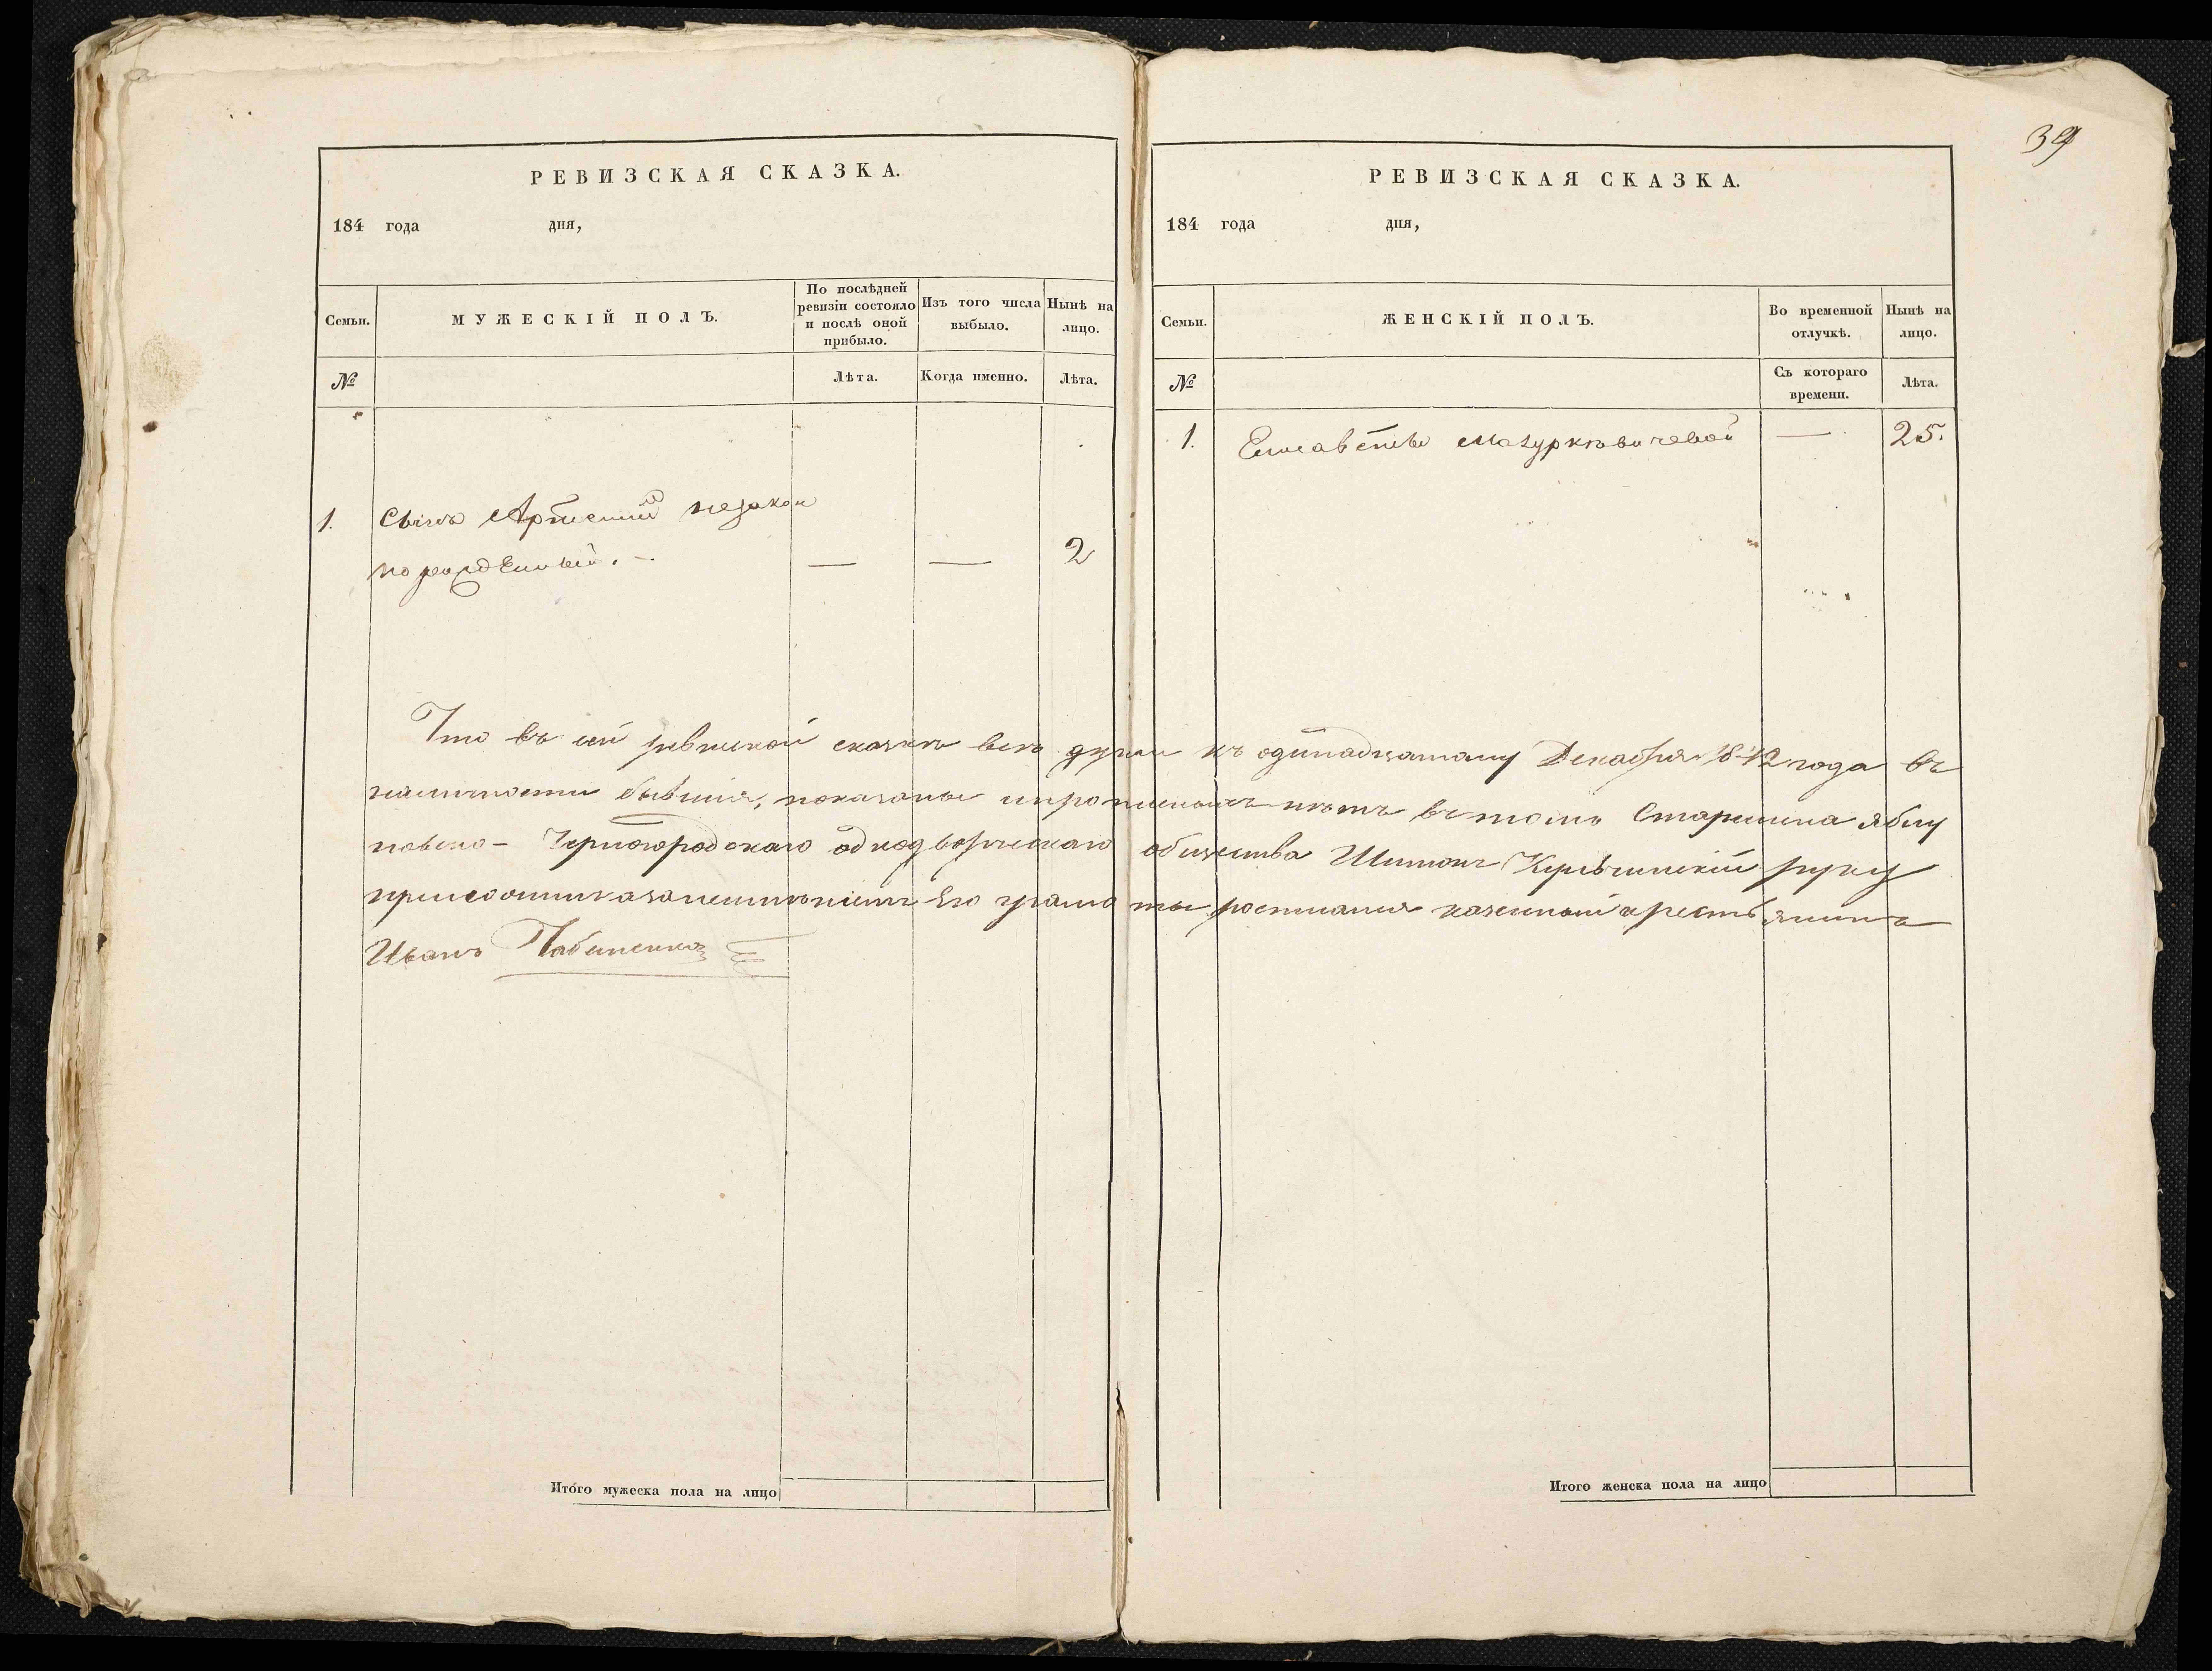 39
РЕВИЗСКАЯ СКАЗКА.
184 года дня,
Семьи.
МУЖЕСКІЙ ПОЛЪ.
По послѣдней ревизіи состояло и послѣ оной прибыло.
Изъ того числа выбыло.
Нынѣ на лицо.
№
Лѣта.
Когда именно.
Лѣта.
1. Сынъ Артемий незакон
норожденный. — — — 2
РЕВИЗСКАЯ СКАЗКА.
184 года дня,
Семьи.
ЖЕНСКІЙ ПОЛЪ.
Во временной отлучкѣ.
Нынѣ на лицо.
№
Съ котораго времени.
Лѣта.
1. Елисавѣты Мазуркѣвичевой — 25.
Что въ сей ревиской сказкѣ всѣ души къ одинадцатому Декабря 1842 года въ
наличности бывшия, показаны и прописныхъ нѣтъ въ томъ Старшина Яблу
новско- Черногородскаго однодворческаго общества руку
приложилъ а за неимѣниемъ Его грамоты росписался казенный крестьянинъ
Иванъ
Итого мужеска пола на лицо
Итого женска пола на лицо